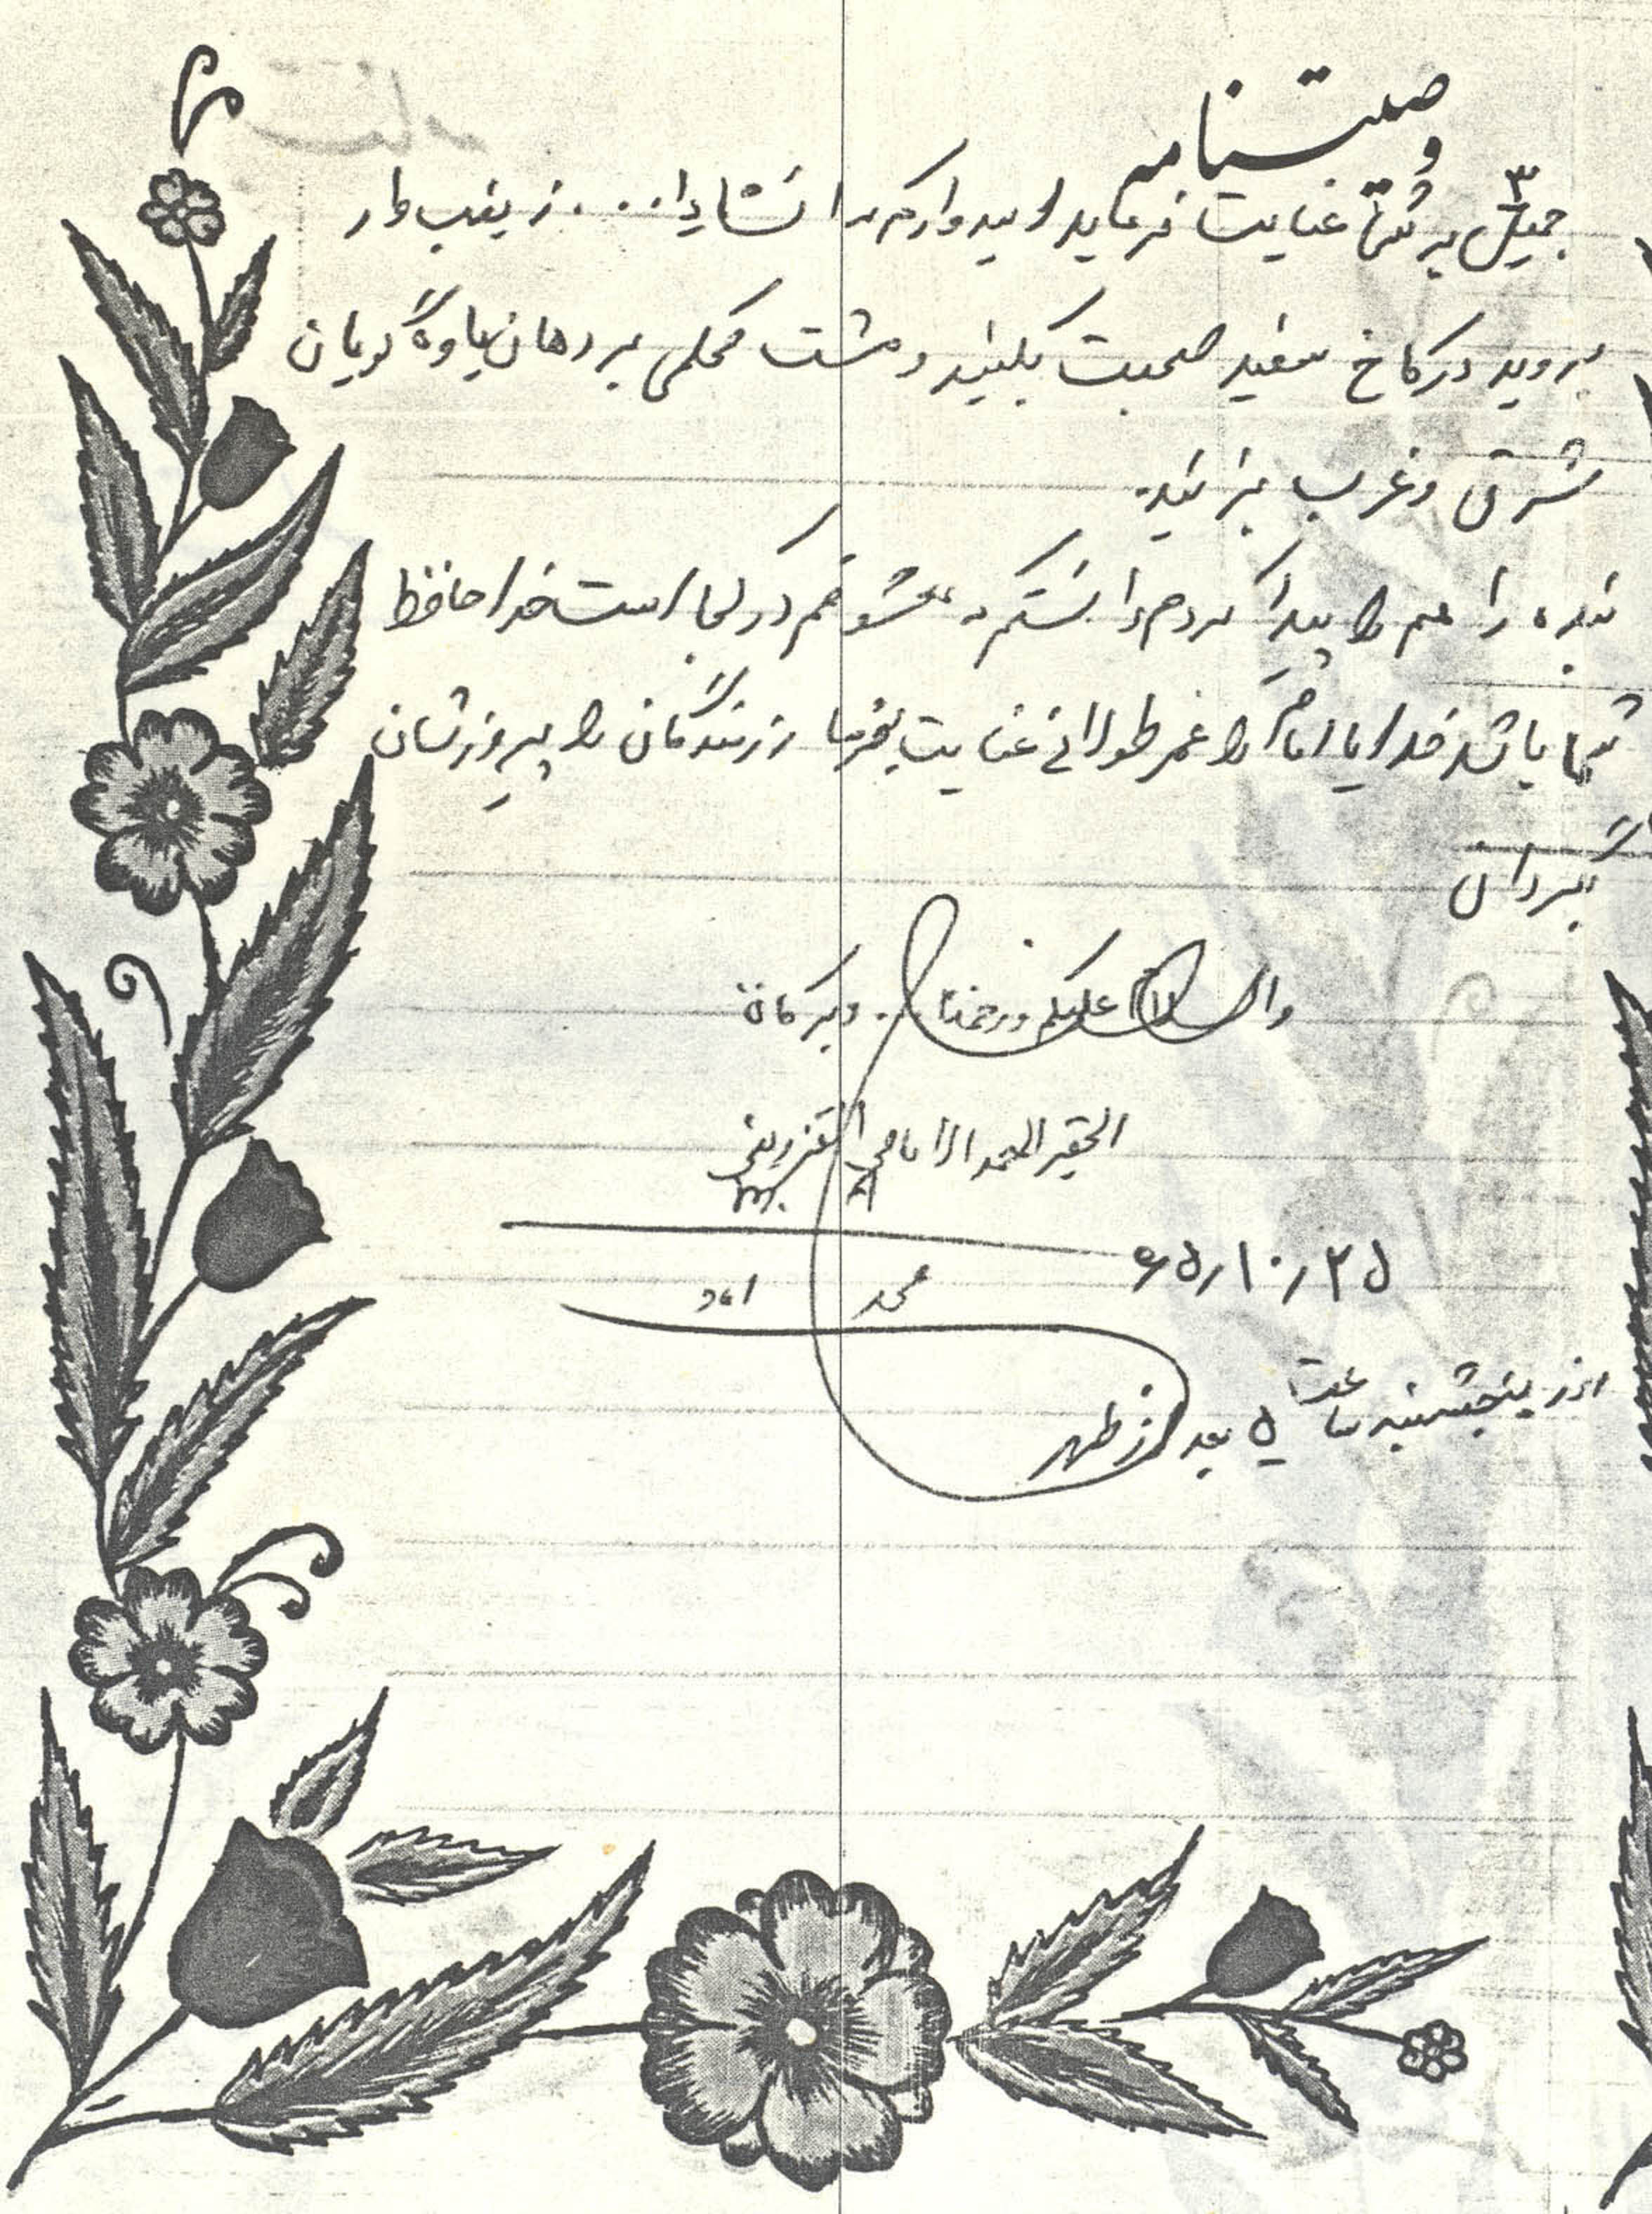 وصیتنامه
۳
جمیل به شما عنایت فرماید امیدوارم که انشاءا... زینب وار
بروید در کاخ سفید صحبت بکنید و مشت محکمی بر دهان یاوه گویان
شرق و غرب بزنید.
بنده راهم را پیدا کردم دانستم که معشوقم در کجا است خدا حافظ
شما باشد خدایا امام را عمر طولانی عنایت بفرما رزمندگان را پیروزشان
بگردان
والسلام علیکم و رحمة ا... و برکاته
الحقیر المحمد الامامی القزوینی
۶۵/۱۰/۲۵
محمد
روز پنجشنبه ساعت ۵ بعد از ظهر